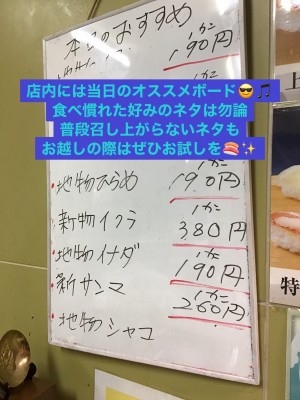 本日のおすすめ
1カン
190円
店内には当日のオススメボード😎🎵
食べ慣れた好みのネタは勿論
普段召し上がらないネタも
お越しの際はぜひお試しを🍣✨
・地物ひらめ
190円
新物イクラ
1カン
380円
・地物イナダ
1カン
190円
・新サンマ
1カン
260円
・地物シャコ
特